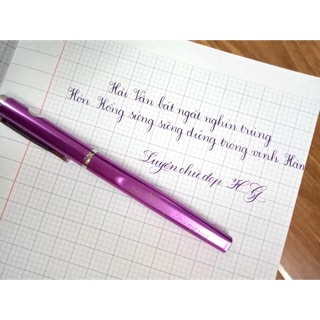 Hải Vân bát ngát nghìn trùng
Hòn Hồng sừng sững đứng trong vịnh Hàn
Luyện chữ đẹp HG